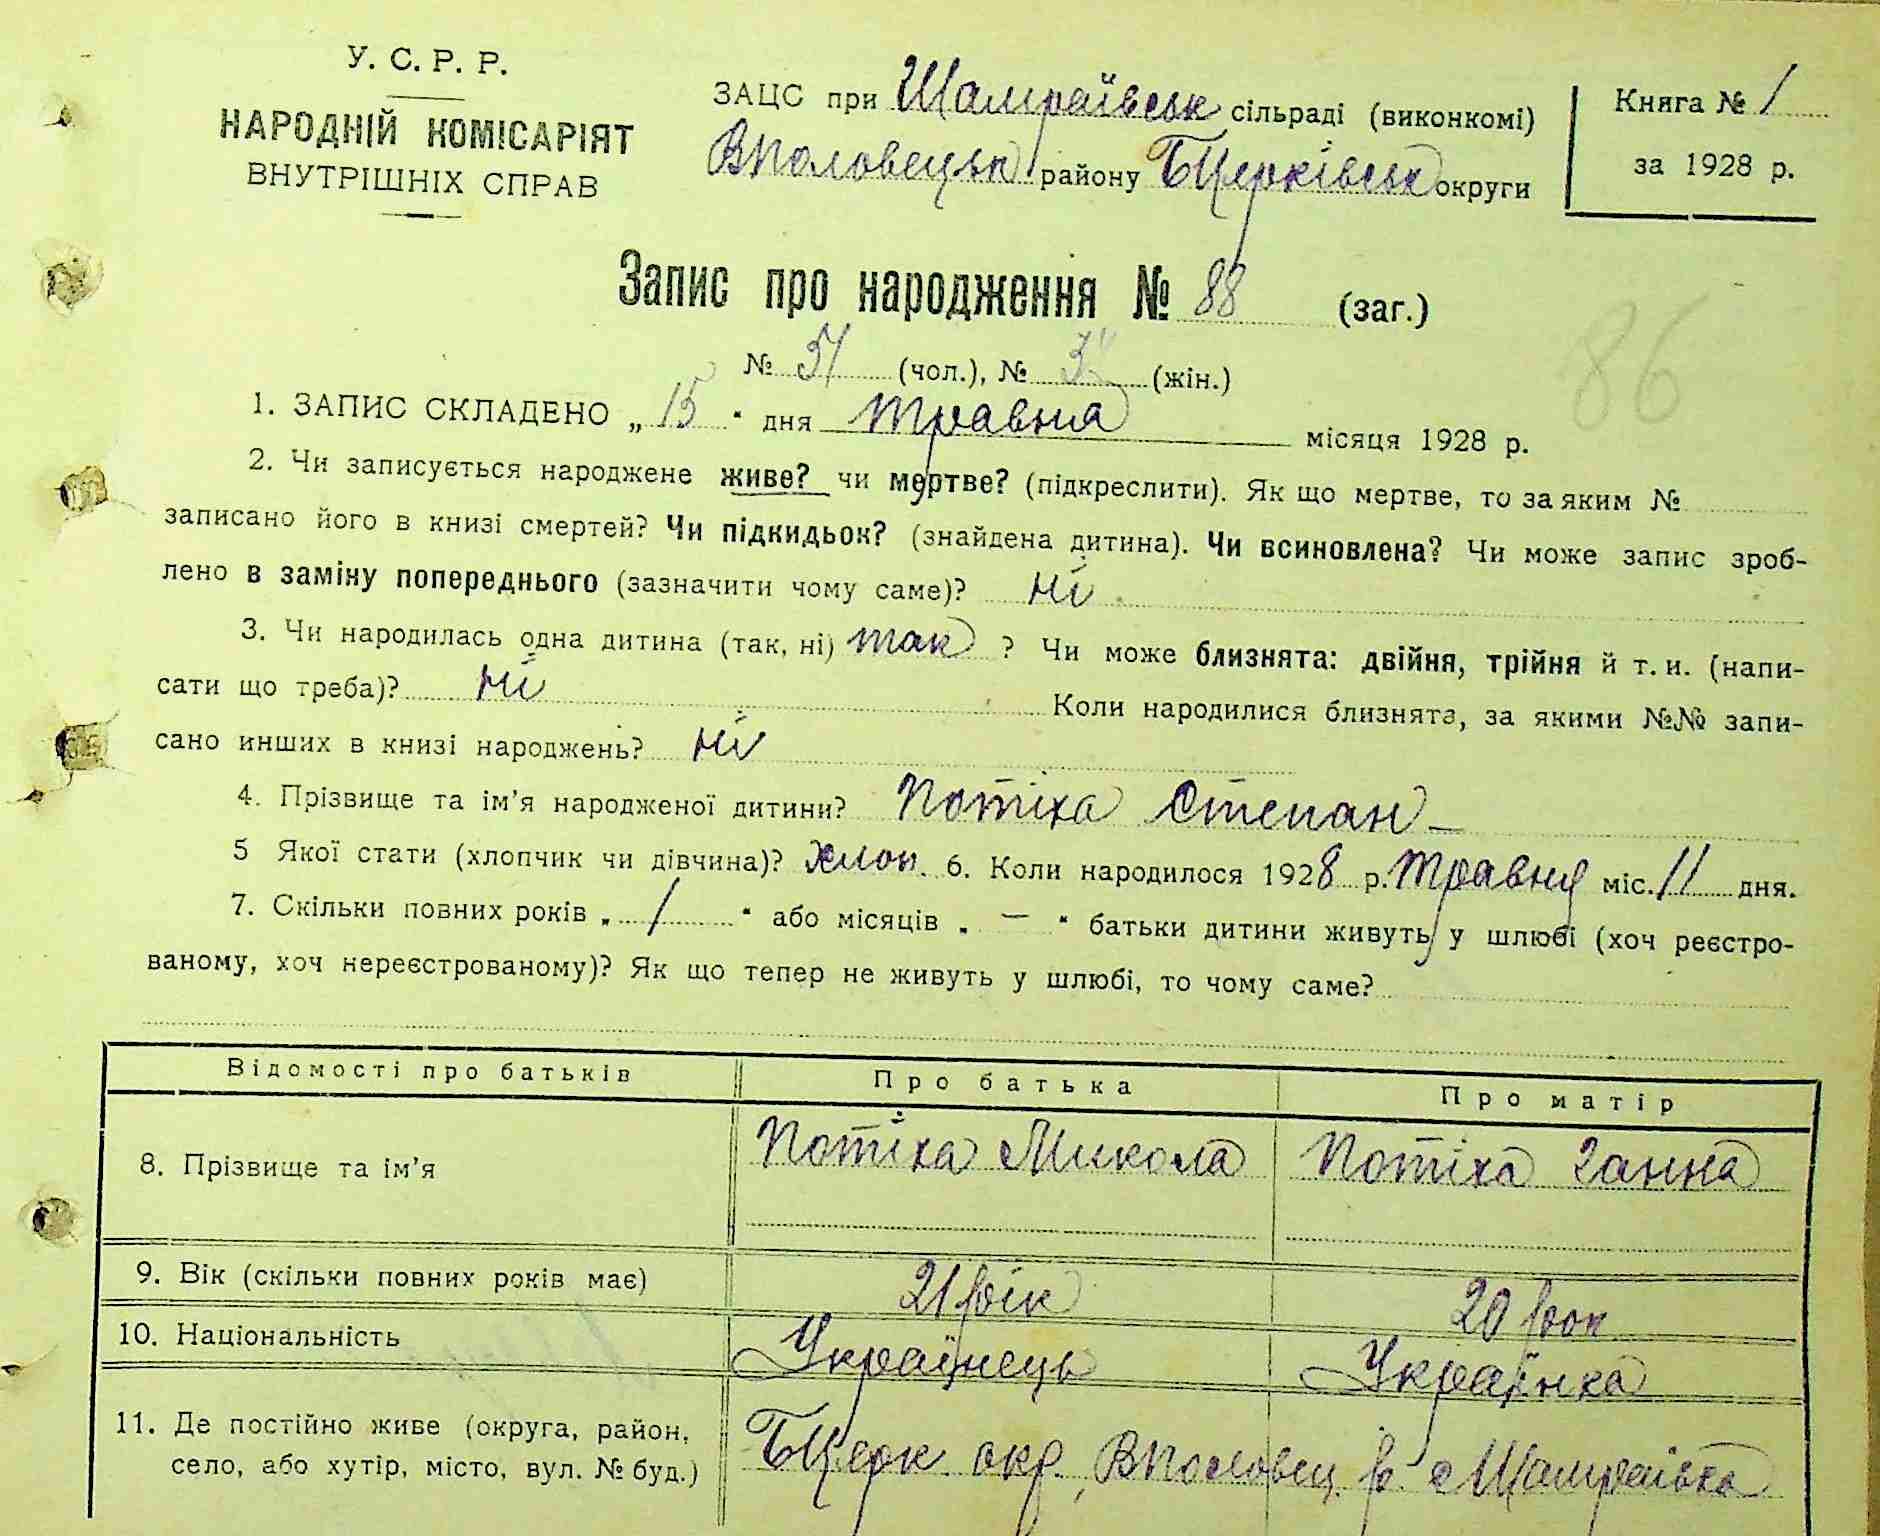 У. С. Р. Р.
НАРОДНІЙ КОМІСАРІЯТ
ВНУТРІШНІХ СПРАВ
ЗАЦС при Шамраївськ сільраді (виконкомі)
ВПоловецьк району БЦерківськ округи
Книга № 1
за 1928 р.
Запис про народження № 88 (заг.)
№ (чол.), № (жін.)
86
1. ЗАПИС СКЛАДЕНО „ 15 “ дня травня місяця 1928 р.
2. Чи записується народжене живе? чи мертве? (підкреслити). Як що мертве, то за яким №
записано його в книзі смертей? Чи підкидьок? (знайдена дитина). Чи всиновлена? Чи може запис зроб-
лено в заміну попереднього (зазначити чому саме)? ні
3. Чи народилась одна дитина (так, ні) так ? Чи може близнята: двійня, трійня й т. и. (напи-
сати що треба)? ні Коли народилися близнята, за якими №№ запи-
сано инших в книзі народжень? ні
4. Прізвище та ім’я народженої дитини? Потіха Степан –
5 Якої стати (хлопчик чи дівчина)? хлоп. 6. Коли народилося 1928 р. травня міс. 11 дня.
7. Скільки повних років „ 1 “ або місяців „ — “ батьки дитини живуть у шлюбі (хоч реєстро-
ваному, хоч нереєстрованому)? Як що тепер не живуть у шлюбі, то чому саме?
Відомості про батьків Про батька Про матір
8. Прізвище та ім’я Потіха Микола Потіха Ганна
9. Вік (скільки повних років має) 21 рік 20 рок
10. Національність Українець Українка
11. Де постійно живе (округа, район,
село, або хутір, місто, вул. № буд.) БЦерк окр. ВПоловец. р. с Шамраївка